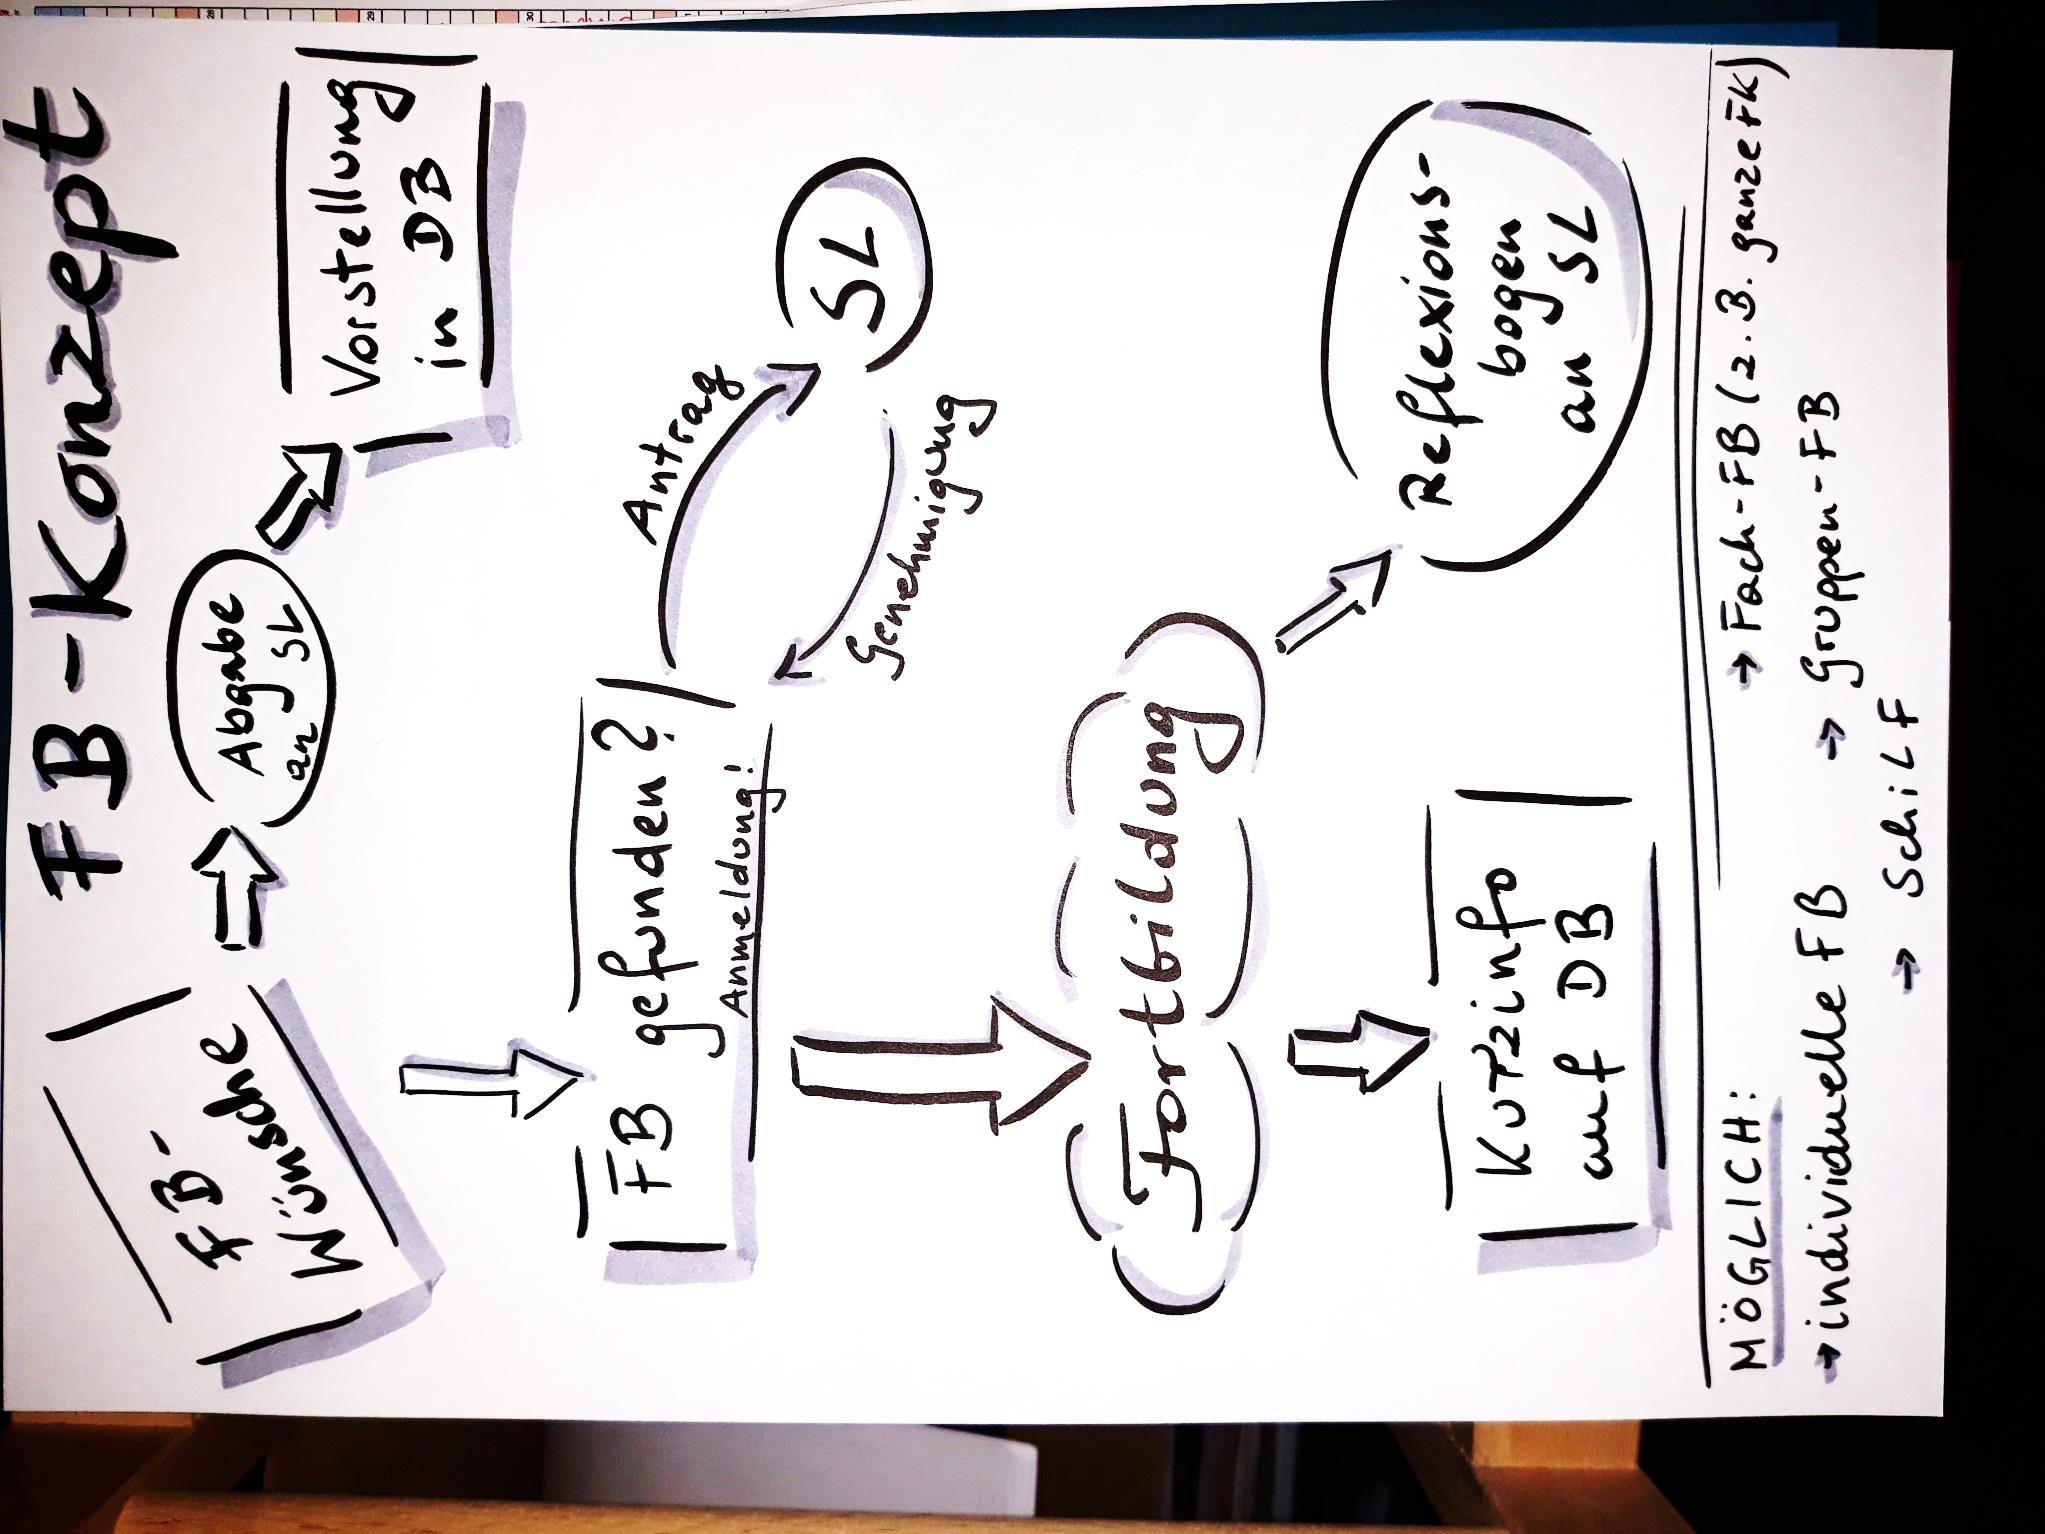 FB-Konzept
FB-
Wünsche
Abgabe
an SL
Vorstellung
in DB
FB gefunden?
Anmeldung!
Antrag
SL
Genehmigung
Fortbildung
Kurzinfo
auf DB
Reflexions-
bogen
an SL
MÖGLICH:
→ Fach-FB (z.B. ganze FK)
→ individuelle FB
→ Gruppen-FB
→ SchiLF
28
29
30